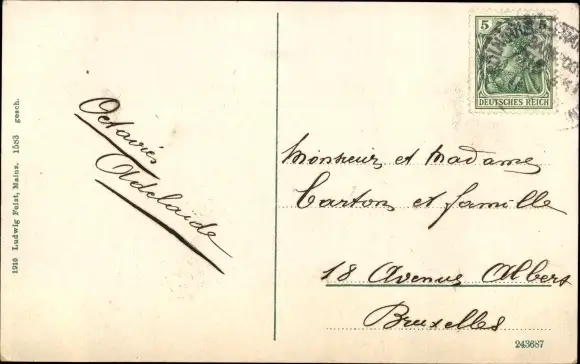 5
DEUTSCHES REICH
Octavie
Adelaide
Monsieur et Madame
Cartons et famille
18 Avenue Albert
Bruxelles
243687
1910 Ludwig Feist, Mainz. 1583 gesch.